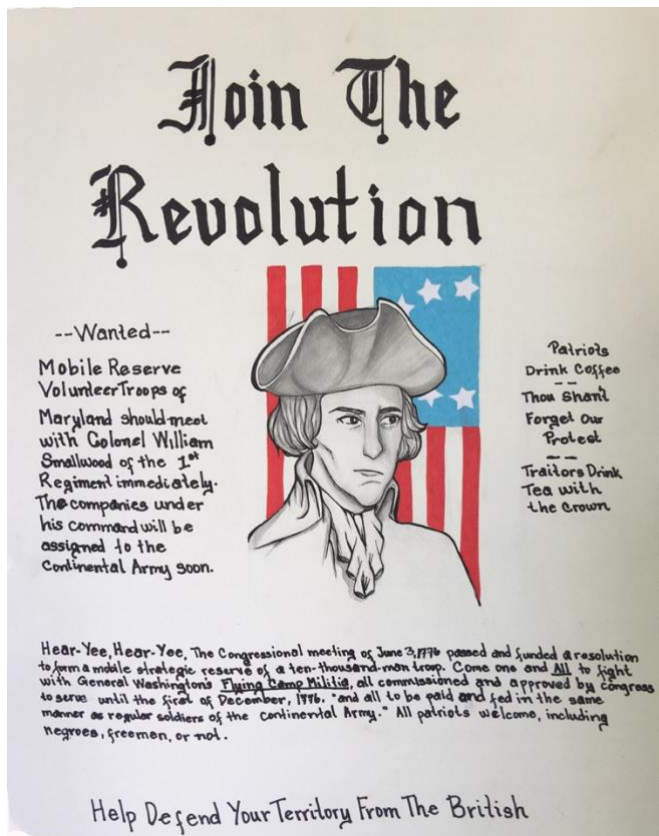 Join The
Revolution
--Wanted--
Mobile Reserve
Volunteer Troops of
Maryland should meet
with Colonel William
Smallwood of the 1st
Regiment immediately.
The companies under
his command will be
assigned to the
Continental Army soon.
Patriots
Drink Coffee
--
Thou Shan't
Forget Our
Protest
--
Traitors Drink
Tea with
the Crown
Hear-Yee, Hear-Yee, The Congressional meeting of June 3, 1776 passed and funded a resolution
to form a mobile strategic reserve of a ten-thousand-man troop. Come one and All to fight
with General Washington's Flying Camp Militia, all commissioned and approved by congress
to serve until the first of December, 1776. "and all to be paid and fed in the same
manner as regular soldiers of the Continental Army." All patriots welcome, including
negroes, freemen, or not.
Help Defend Your Territory From The British